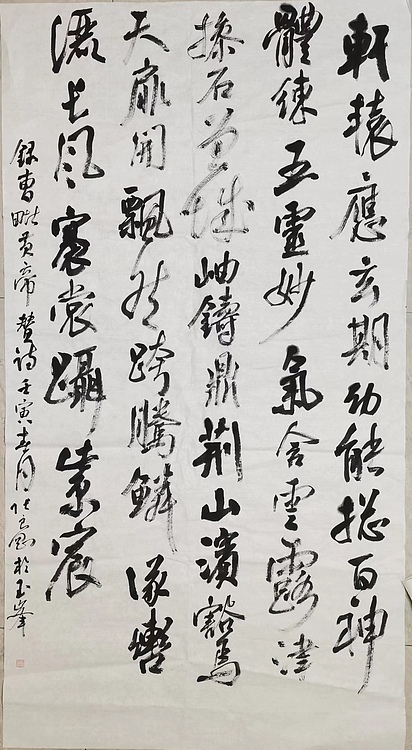 軒轅應玄期幼能摠百神
體練五靈妙氣含雲露津
掺石曾城岫鑄鼎荆山濱豁焉
天扉開飄然跨騰鱗儀轡
灑長風褰裳躡紫宸
錄曹毗黄帝贊詩壬寅春月於玉峯